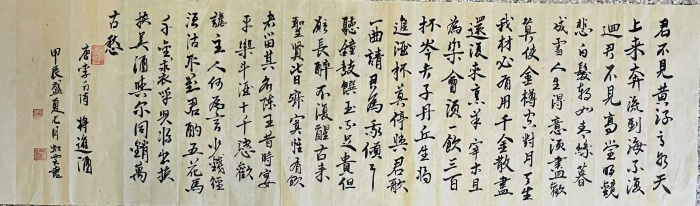 君不見黃河之水天
上來奔流到海不復
迴君不見高堂明鏡
悲白髮朝如青絲暮
成雪人生得意須盡歡
莫使金樽空對月天生
我材必有用千金散盡
還復來烹羊宰牛且
為樂會須一飲三百
杯岑夫子丹丘生將
進酒杯莫停與君歌
一曲請君為我傾耳
聽鐘鼓饌玉不足貴但
願長醉不復醒古來
聖賢皆寂寞惟有飲
者留其名陳王昔時宴
平樂斗酒十千恣歡
謔主人何為言少錢徑
須沽取對君酌五花馬
千金裘呼兒將出換
換美酒與尔同銷萬
古愁
唐李白詩 將進酒
甲辰盛夏七月 書